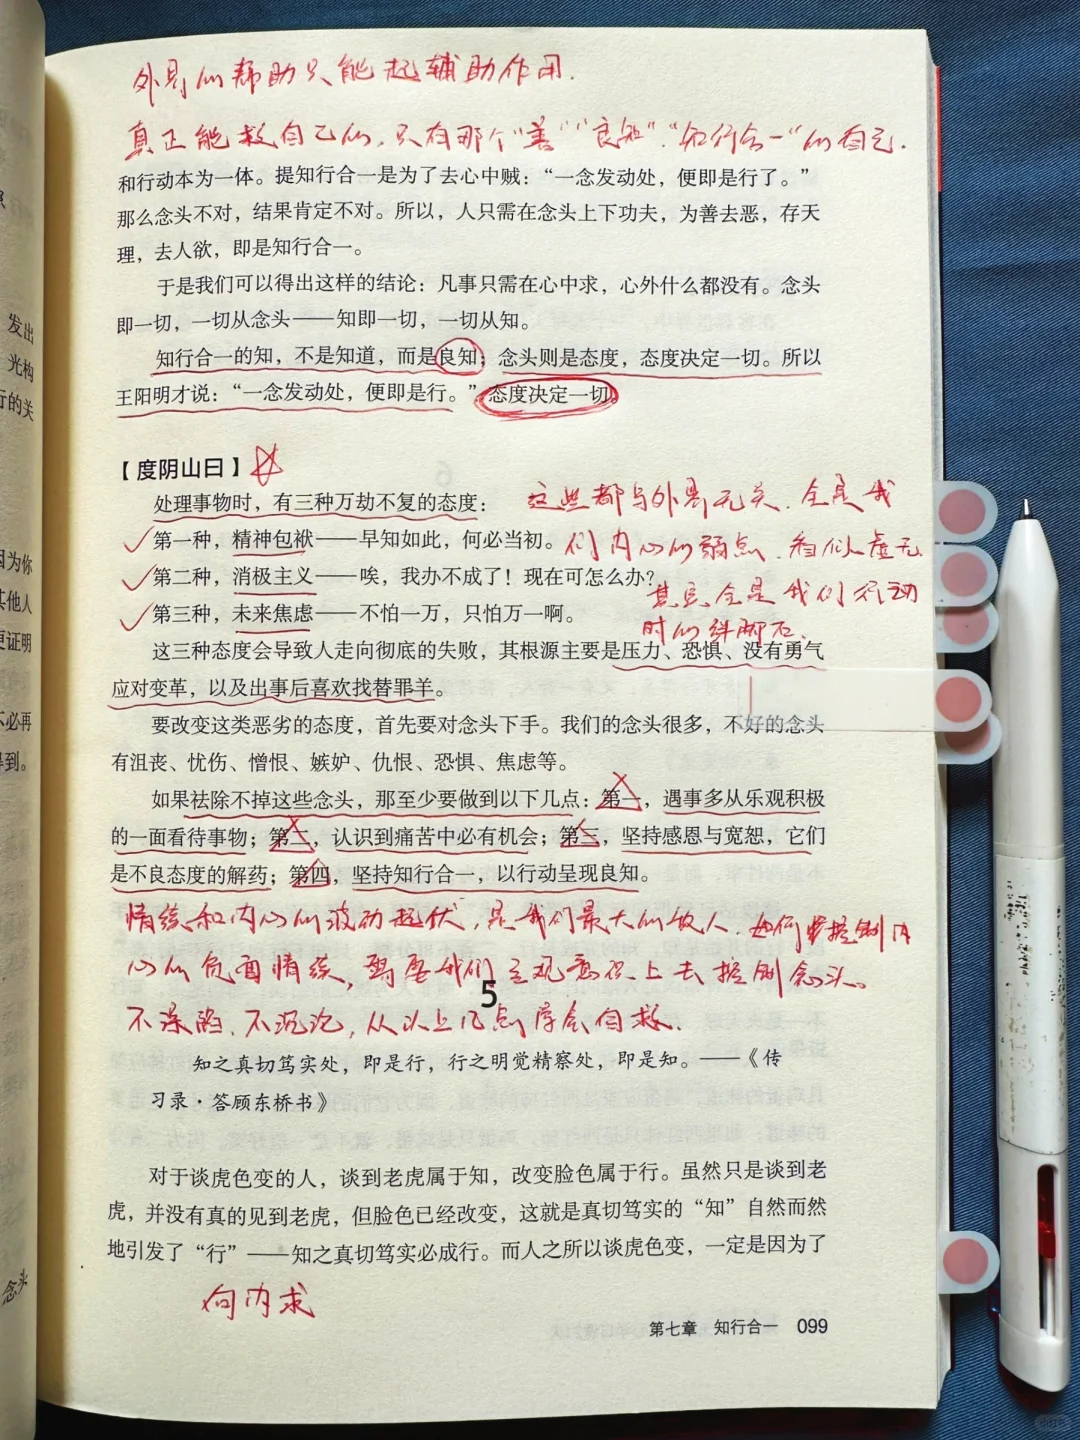 外界的帮助只能起辅助作用.
真正能救自己的,只有那个“善”“良知”“知行合一”的自己.
和行动本为一体。提知行合一是为了去心中贼：“一念发动处，便即是行了。”
那么念头不对，结果肯定不对。所以，人只需在念头上下功夫，为善去恶，存天
理，去人欲，即是知行合一。
于是我们可以得出这样的结论：凡事只需在心中求，心外什么都没有。念头
即一切，一切从念头——知即一切，一切从知。
知行合一的知，不是知道，而是良知；念头则是态度，态度决定一切。所以
王阳明才说：“一念发动处，便即是行。”态度决定一切。
【度阴山曰】
处理事物时，有三种万劫不复的态度：
这些都与外界无关.全是我
第一种，精神包袱——早知如此，何必当初。
们内心的弱点.看似虚无
第二种，消极主义——唉，我办不成了！现在可怎么办？
其实全是我们行动
第三种，未来焦虑——不怕一万，只怕万一啊。
时的绊脚石.
这三种态度会导致人走向彻底的失败，其根源主要是压力、恐惧、没有勇气
应对变革，以及出事后喜欢找替罪羊。
要改变这类恶劣的态度，首先要对念头下手。我们的念头很多，不好的念头
有沮丧、忧伤、憎恨、嫉妒、仇恨、恐惧、焦虑等。
如果祛除不掉这些念头，那至少要做到以下几点：第一，遇事多从乐观积极
的一面看待事物；第二，认识到痛苦中必有机会；第三，坚持感恩与宽恕，它们
是不良态度的解药；第四，坚持知行合一，以行动呈现良知。
情绪和内心的波动起伏,是我们最大的敌人.如何掌控制内
心的负面情绪,需要我们主观意识上去控制念头。
5
不深陷.不沉沦,从以上几点学会自救.
知之真切笃实处，即是行，行之明觉精察处，即是知。——《传
习录·答顾东桥书》
对于谈虎色变的人，谈到老虎属于知，改变脸色属于行。虽然只是谈到老
虎，并没有真的见到老虎，但脸色已经改变，这就是真切笃实的“知”自然而然
地引发了“行”——知之真切笃实必成行。而人之所以谈虎色变，一定是因为了
向内求
第七章 知行合一 099
发出
光构
行的关
因为你
其他人
更证明
不必再
得到。
念头